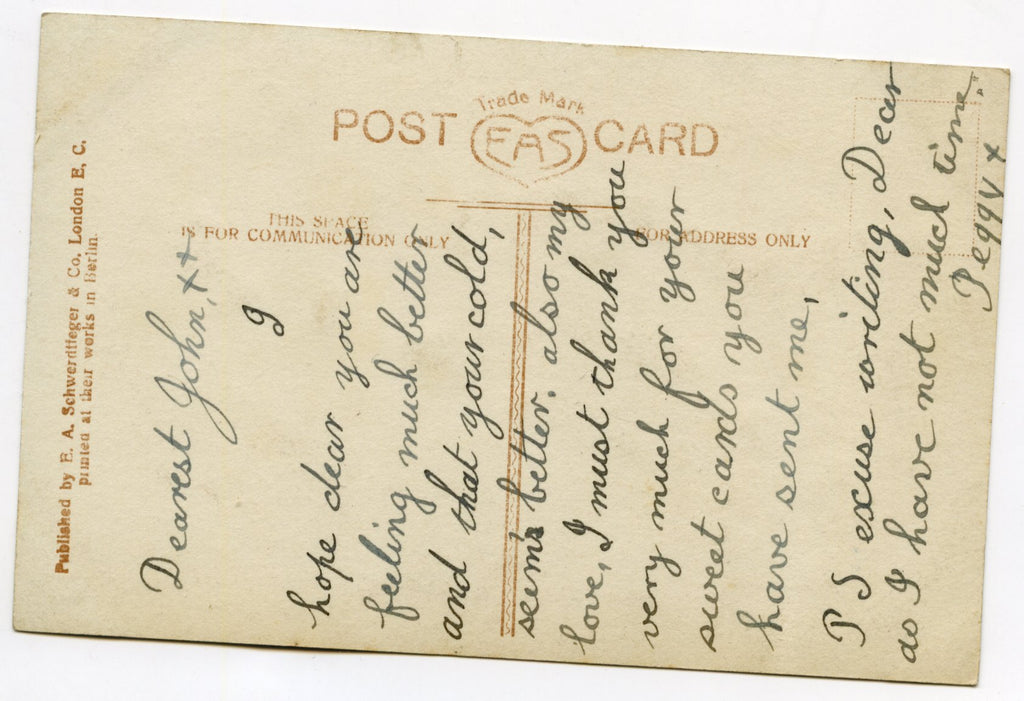 Published by E. A. Schwerdtfeger & Co., London E. C.
printed at their works in Berlin.
Trade Mark
POST EAS CARD
THIS SPACE
IS FOR COMMUNICATION ONLY
FOR ADDRESS ONLY
Dearest John, x+
I
hope dear you are
feeling much better
and that your cold,
seem's better. also my
love, I must thank you
very much for your
sweet cards you
have sent me,
P S excuse writing, Dear
as I have not much time.
Peggy x